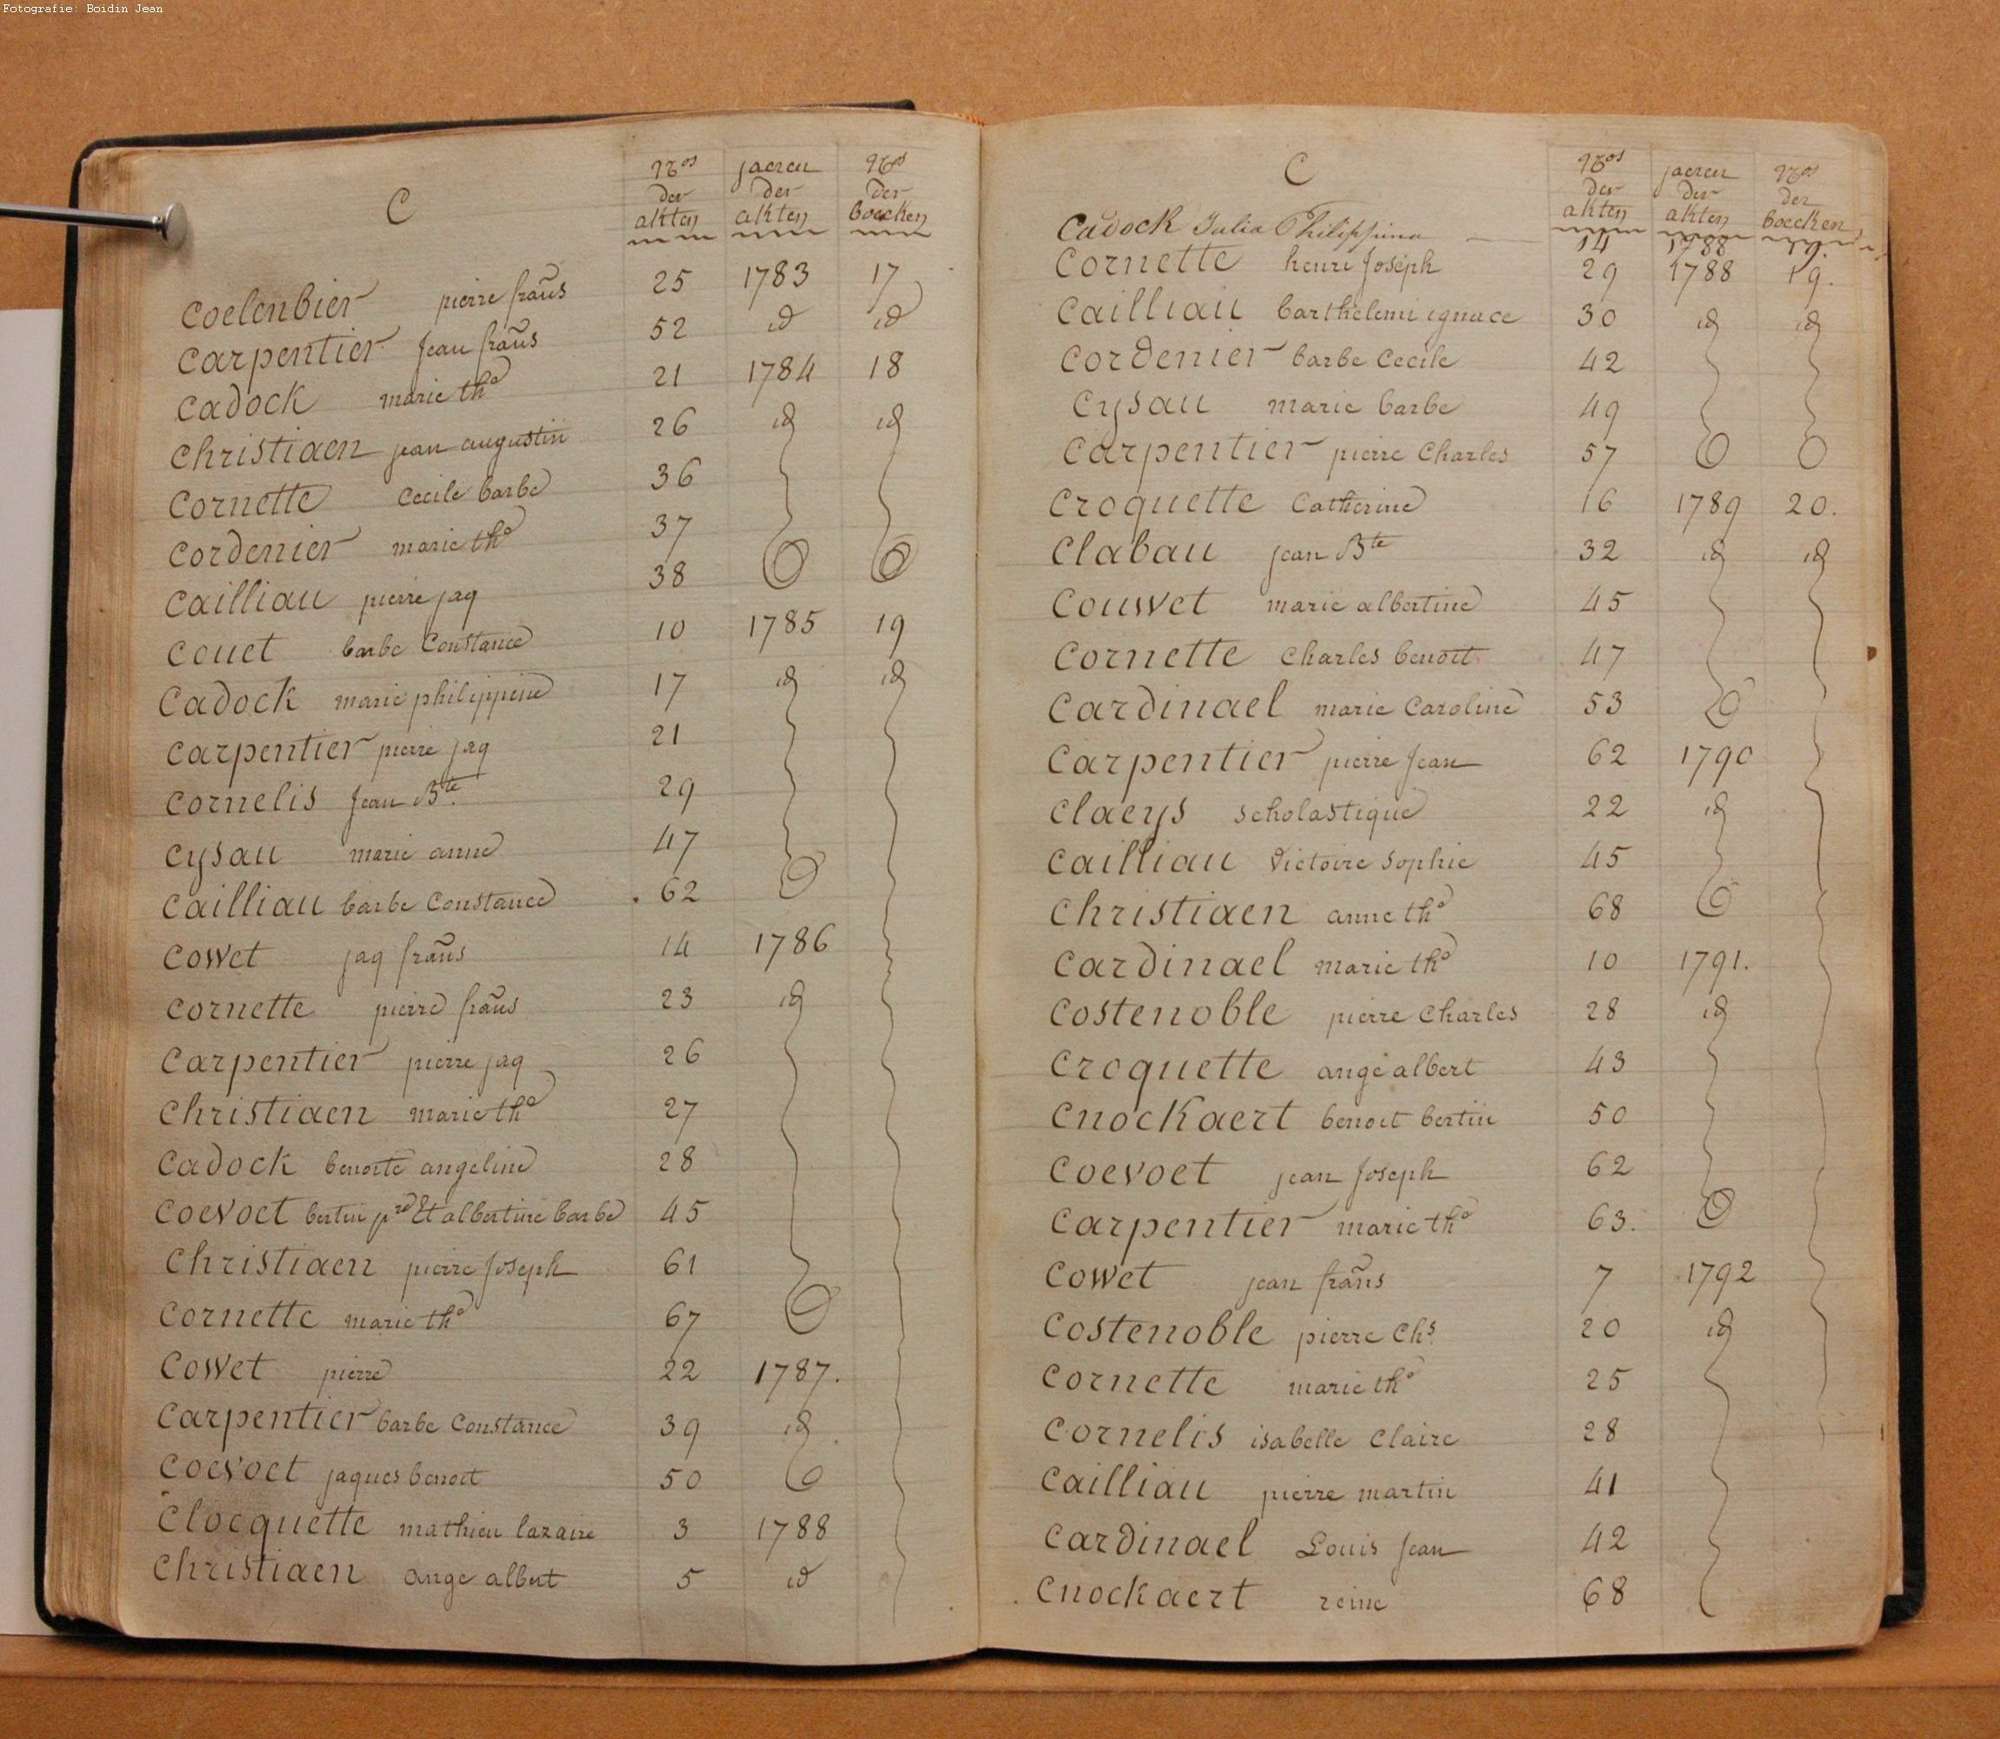 Fotografie: Boidin Jean
C
Nros der akten jaeren der akten Nros der boecken
Coelenbier pierre frañs 25 1783 17
Carpentier Jean frañs 52 id id
Cadock marie the 21 1784 18
Christiaen jean augustin 26 id id
Cornette Cecile barbe 36
Cordenier marie the 37
Cailliau pierre jaq 38
Couet barbe Constance 10 1785 19
Cadock marie philippine 17 id id
Carpentier pierre jaq 21
Cornelis Jean Bte 29
Cysau marie anne 47
Cailliau barbe Constance 62
Cowet jaq frañs 14 1786
Cornette pierre frañs 23 id
Carpentier pierre jaq 26
Christiaen marie the 27
Cadock benoite angeline 28
Coevoet bertin pre Et albertine barbe 45
Christiaen pierre Joseph 61
Cornette marie the 67
Cowet pierre 22 1787.
Carpentier barbe Constance 39 id
Coevoet jaques benoit 50
Clocquette mathieu lazaire 3 1788
Christiaen ange albert 5 id
C
Nros der akten jaeren der akten Nros der boecken
Cadock Julia Philippina 14 1788 19.
Cornette henri Joseph 29 1788 19.
Cailliau barthelemi ignace 30 id id
Cordenier barbe Cecile 42
Cysau marie barbe 49
Carpentier pierre Charles 57
Croquette Catherine 16 1789 20.
Clabau jean Bte 32 id id
Couwet marie albertine 45
Cornette Charles benoit 47
Cardinael marie Caroline 53
Carpentier pierre Jean 62 1790
Claeys scholastique 22 id
Cailliau Victoire Sophie 45
Christiaen anne the 68
Cardinael marie the 10 1791.
Costenoble pierre Charles 28 id
Croquette ange albert 43
Cnockaert benoit bertin 50
Coevoet jean Joseph 62
Carpentier marie the 63.
Cowet jean frañs 7 1792
Costenoble pierre Chs 20 id
Cornette marie the 25
Cornelis isabelle Claire 28
Cailliau pierre martin 41
Cardinael Louis Jean 42
Cnockaert reine 68